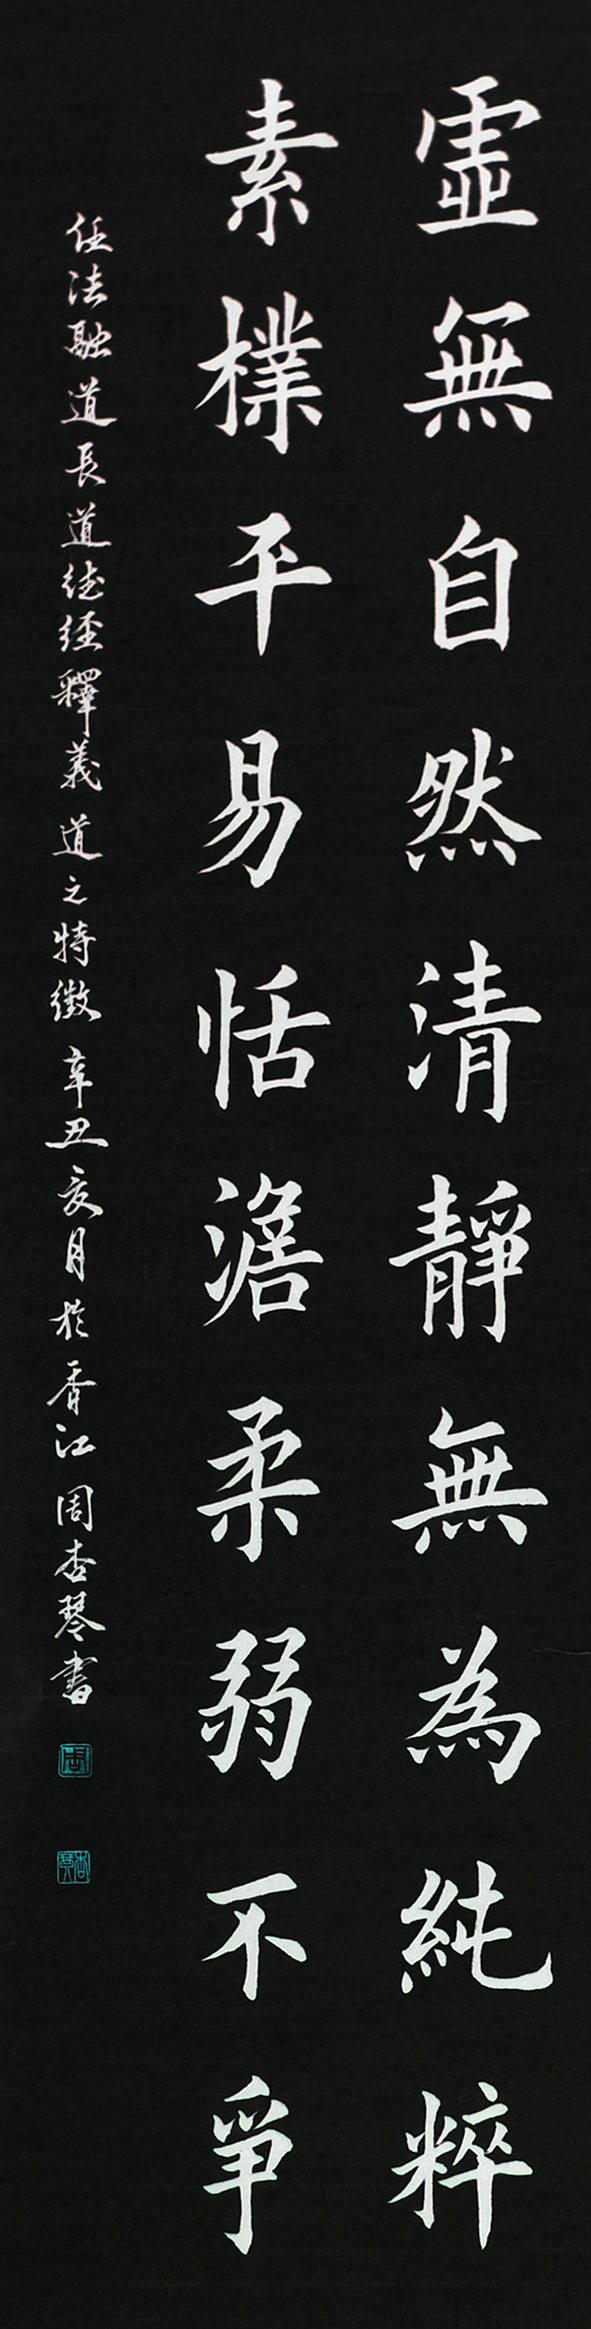 虛無自然清靜無為純粹
素樸平易恬澹柔弱不爭
任法融道長道德經釋義道之特徵辛丑亥月於香江周杏琴書
周
杏琴